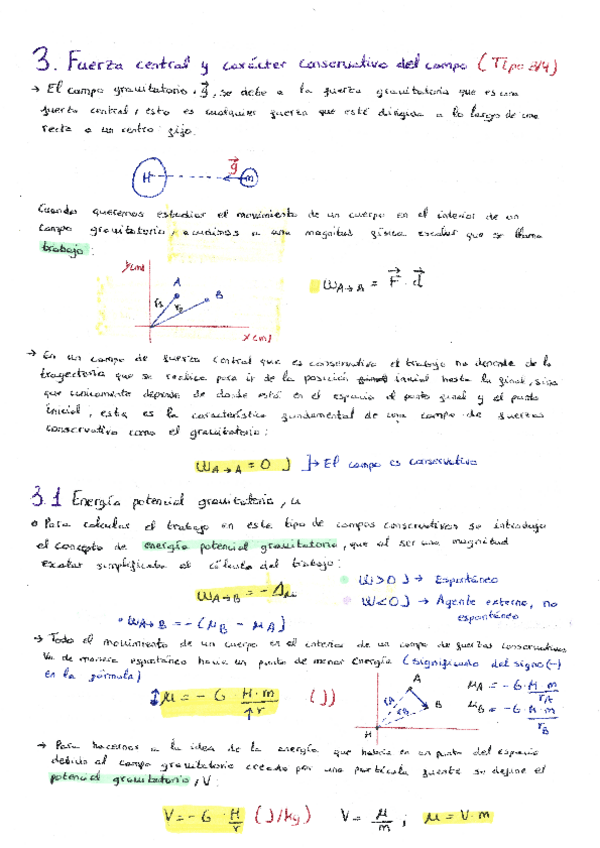 3. Fuerza central y carácter conservativo del campo (Tipo 3/4)
→ El campo gravitatorio, g⃗, se debe a la fuerza gravitatoria que es una
fuerza central, esto es cualquier fuerza que esté dirigida a lo largo de una
recta a un centro fijo.
g⃗
M m
Cuando queremos estudiar el movimiento de un cuerpo en el interior de un
campo gravitatorio, acudimos a una magnitud física escalar que se llama
trabajo:
y(m)
A
B
x(m)
W A→A = F⃗ · d⃗
→ En un campo de fuerza central que es conservativo el trabajo no depende de la
trayectoria que se realice para ir de la posición inicial hasta la final, sino
que únicamente depende de donde esté en el espacio el punto final y el punto
inicial, esta es la característica fundamental de una campo de fuerzas
conservativo como el gravitatorio:
W A→A = 0 J ]→ El campo es conservativo
3.1 Energía potencial gravitatoria, u
Para calcular el trabajo en este tipo de campos conservativos se introduce
el concepto de energía potencial gravitatoria, que al ser una magnitud
escalar simplificaba el cálculo del trabajo:
W A→B = -Δμ
W>0 J → Espontáneo
W<0 J → Agente externo, no
espontáneo
• W A→B = -(μB - μA)
→ Todo el movimiento de un cuerpo en el interior de un campo de fuerzas conservativas
va de manera espontánea hacia un punto de menor energía (significado del signo(-)
en la fórmula)
↓μ = -G · M·m / ↑r (J)
A
B
rA
rB
M
μA = -G · M·m / rA
μB = -G · M·m / rB
→ Para hacernos a la idea de la energía que habría en un punto del espacio
debido al campo gravitatorio creado por una partícula fuente se define el
potencial gravitatorio, V:
V = -G · M / r (J/kg) V = μ / m ; μ = V·m